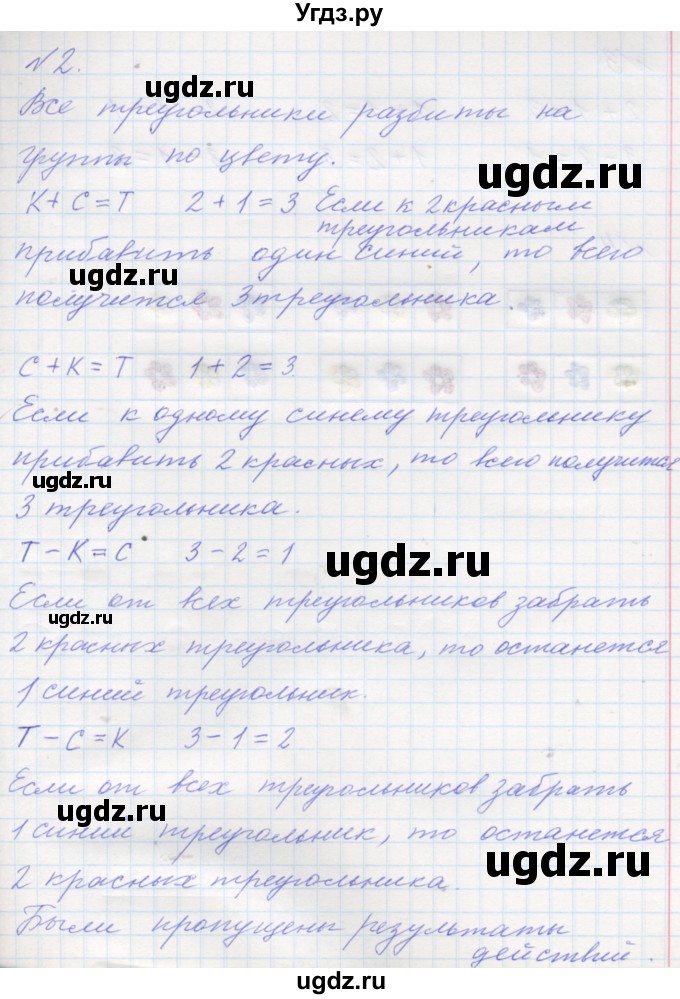 Угдз.ру
№2.
ugdz.ru
Все треугольники разбиты на
группы по цвету.
ugdz.ru
К+С=Т 2+1=3 Если к 2 красным
треугольникам
прибавить один синий, то всего
ugdz.ru
получится 3 треугольника.
ugdz.ru
С+К=Т 1+2=3
Если к одному синему треугольнику
прибавить 2 красных, то всего получится
ugdz.ru
3 треугольника.
Т-К=С 3-2=1
ugdz.ru
Если от всех треугольников забрать
ugdz.ru
2 красных треугольника, то останется
1 синий треугольник.
Т-С=К 3-1=2
Если от всех треугольников забрать
ugdz.ru
1 синий треугольник, то останется
ugdz.ru
2 красных треугольника.
Были пропущены результаты
действий.
ugdz.ru